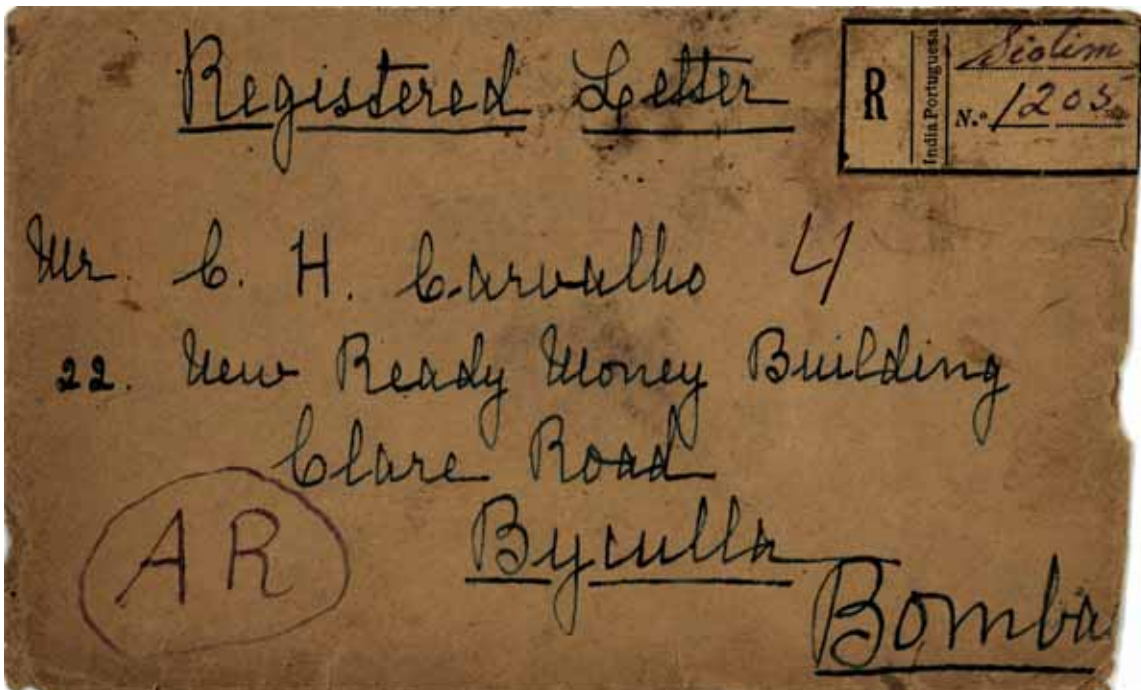 Registered Letter
R
India Portuguesa
Siolim
N.º 1205
Mr. C. H. Carvalho 4
22. New Ready Money Building
Clare Road
Byculla
Bomba
A R